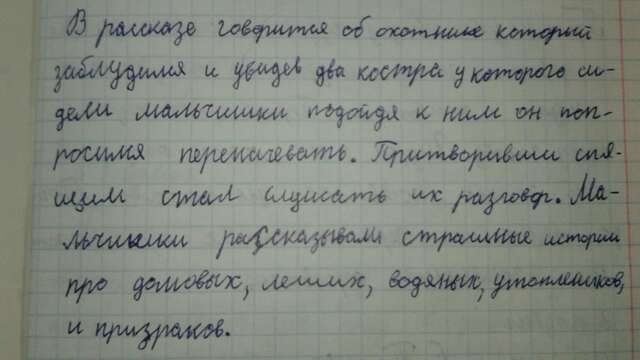 В рассказе говорится об охотнике который
заблудился и увидев два костра у которого си-
дели мальчишки подойдя к ним он поп-
росился переначевать. Притворивши спя-
щим стал слушать их разговор. Ма-
льчишки рассказывали страшные истории
про домовых, леших, водяных, утоплеников,
и призраков.